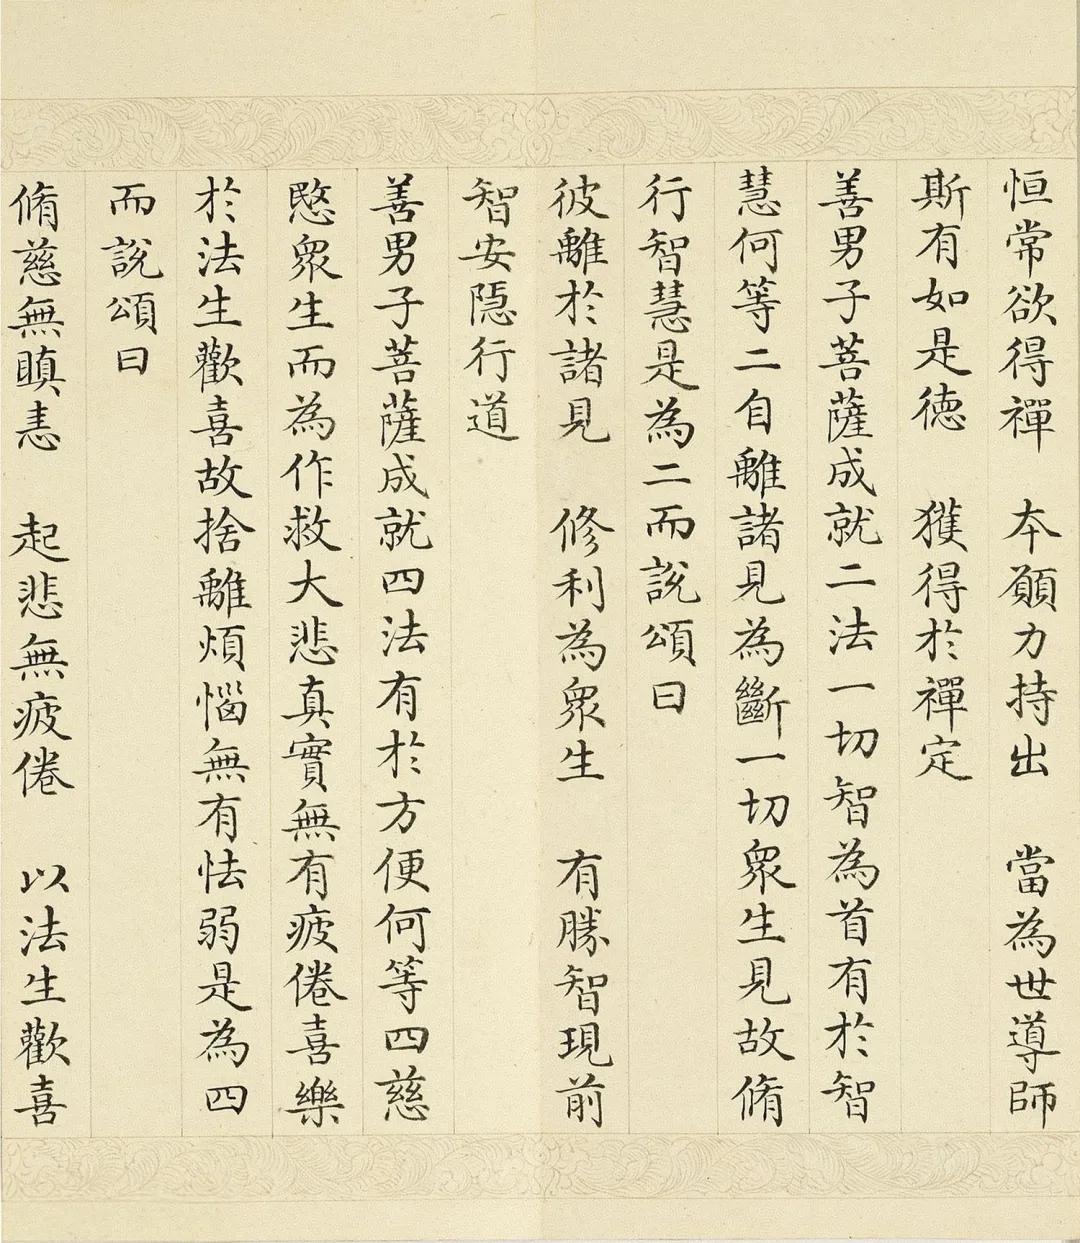 恒常欲得禪　本願力持出　當為世導師
斯有如是德　獲得於禪定
善男子菩薩成就二法一切智為首有於智
慧何等二自離諸見為斷一切眾生見故脩
行智慧是為二而說頌曰
彼離於諸見　修利為眾生　有勝智現前
智安隱行道
善男子菩薩成就四法有於方便何等四慈
愍眾生而為作救大悲真實無有疲倦喜樂
於法生歡喜故捨離煩惱無有怯弱是為四
而說頌曰
脩慈無瞋恚　起悲無疲倦　以法生歡喜